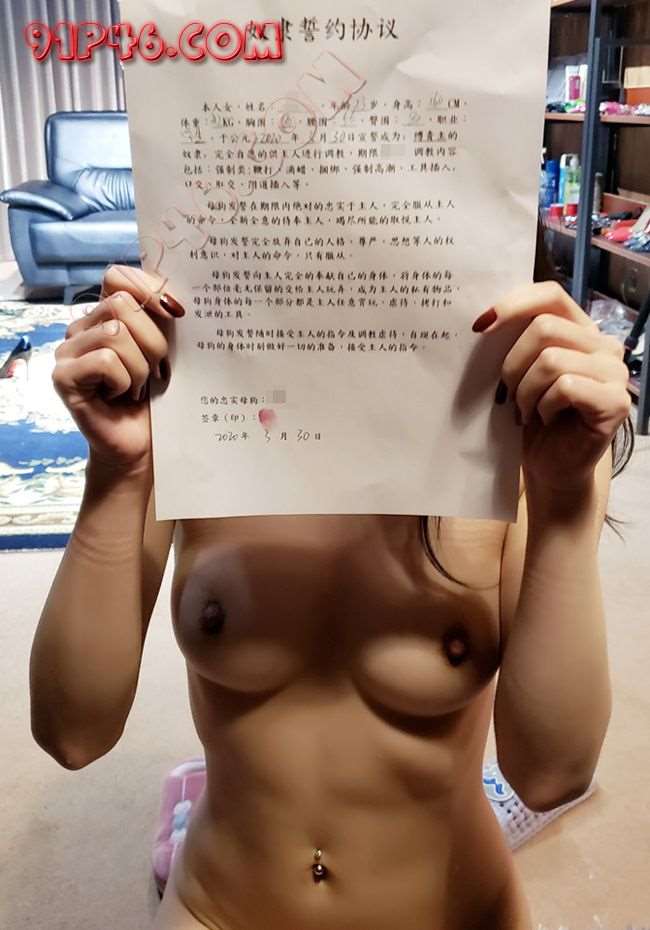 91P46.COM
奴隶誓约协议
本人女，姓名：，年龄23岁，身高：160CM，
体重：KG，胸围：，腰围：，臀围：，职业：
，于公元2020年3月30日宣誓成为：博青主的
奴隶，完全自愿的供主人进行调教，期限 调教内容
包括：强制类：鞭打，滴蜡，捆绑，强制高潮，工具插入；
口交，肛交，阴道插入等。
母狗发誓在期限内绝对的忠实于主人，完全服从主人
的命令，全新全意的侍奉主人，竭尽所能的取悦主人。
母狗发誓完全放弃自己的人格，尊严，思想等人的权
利意识，对主人的命令，只有服从。
母狗发誓向主人完全的奉献自己的身体，将身体的每
一个部位毫无保留的交给主人玩弄，成为主人的私有物品，
母狗身体的每一个部分都是主人任意赏玩，虐待，拷打和
发泄的工具。
母狗发誓随时接受主人的指令及调教虐待，自现在起，
母狗的身体时刻做好一切的准备，接受主人的指令。
您的忠实母狗：
签章（印）：
2020年 3 月 30 日